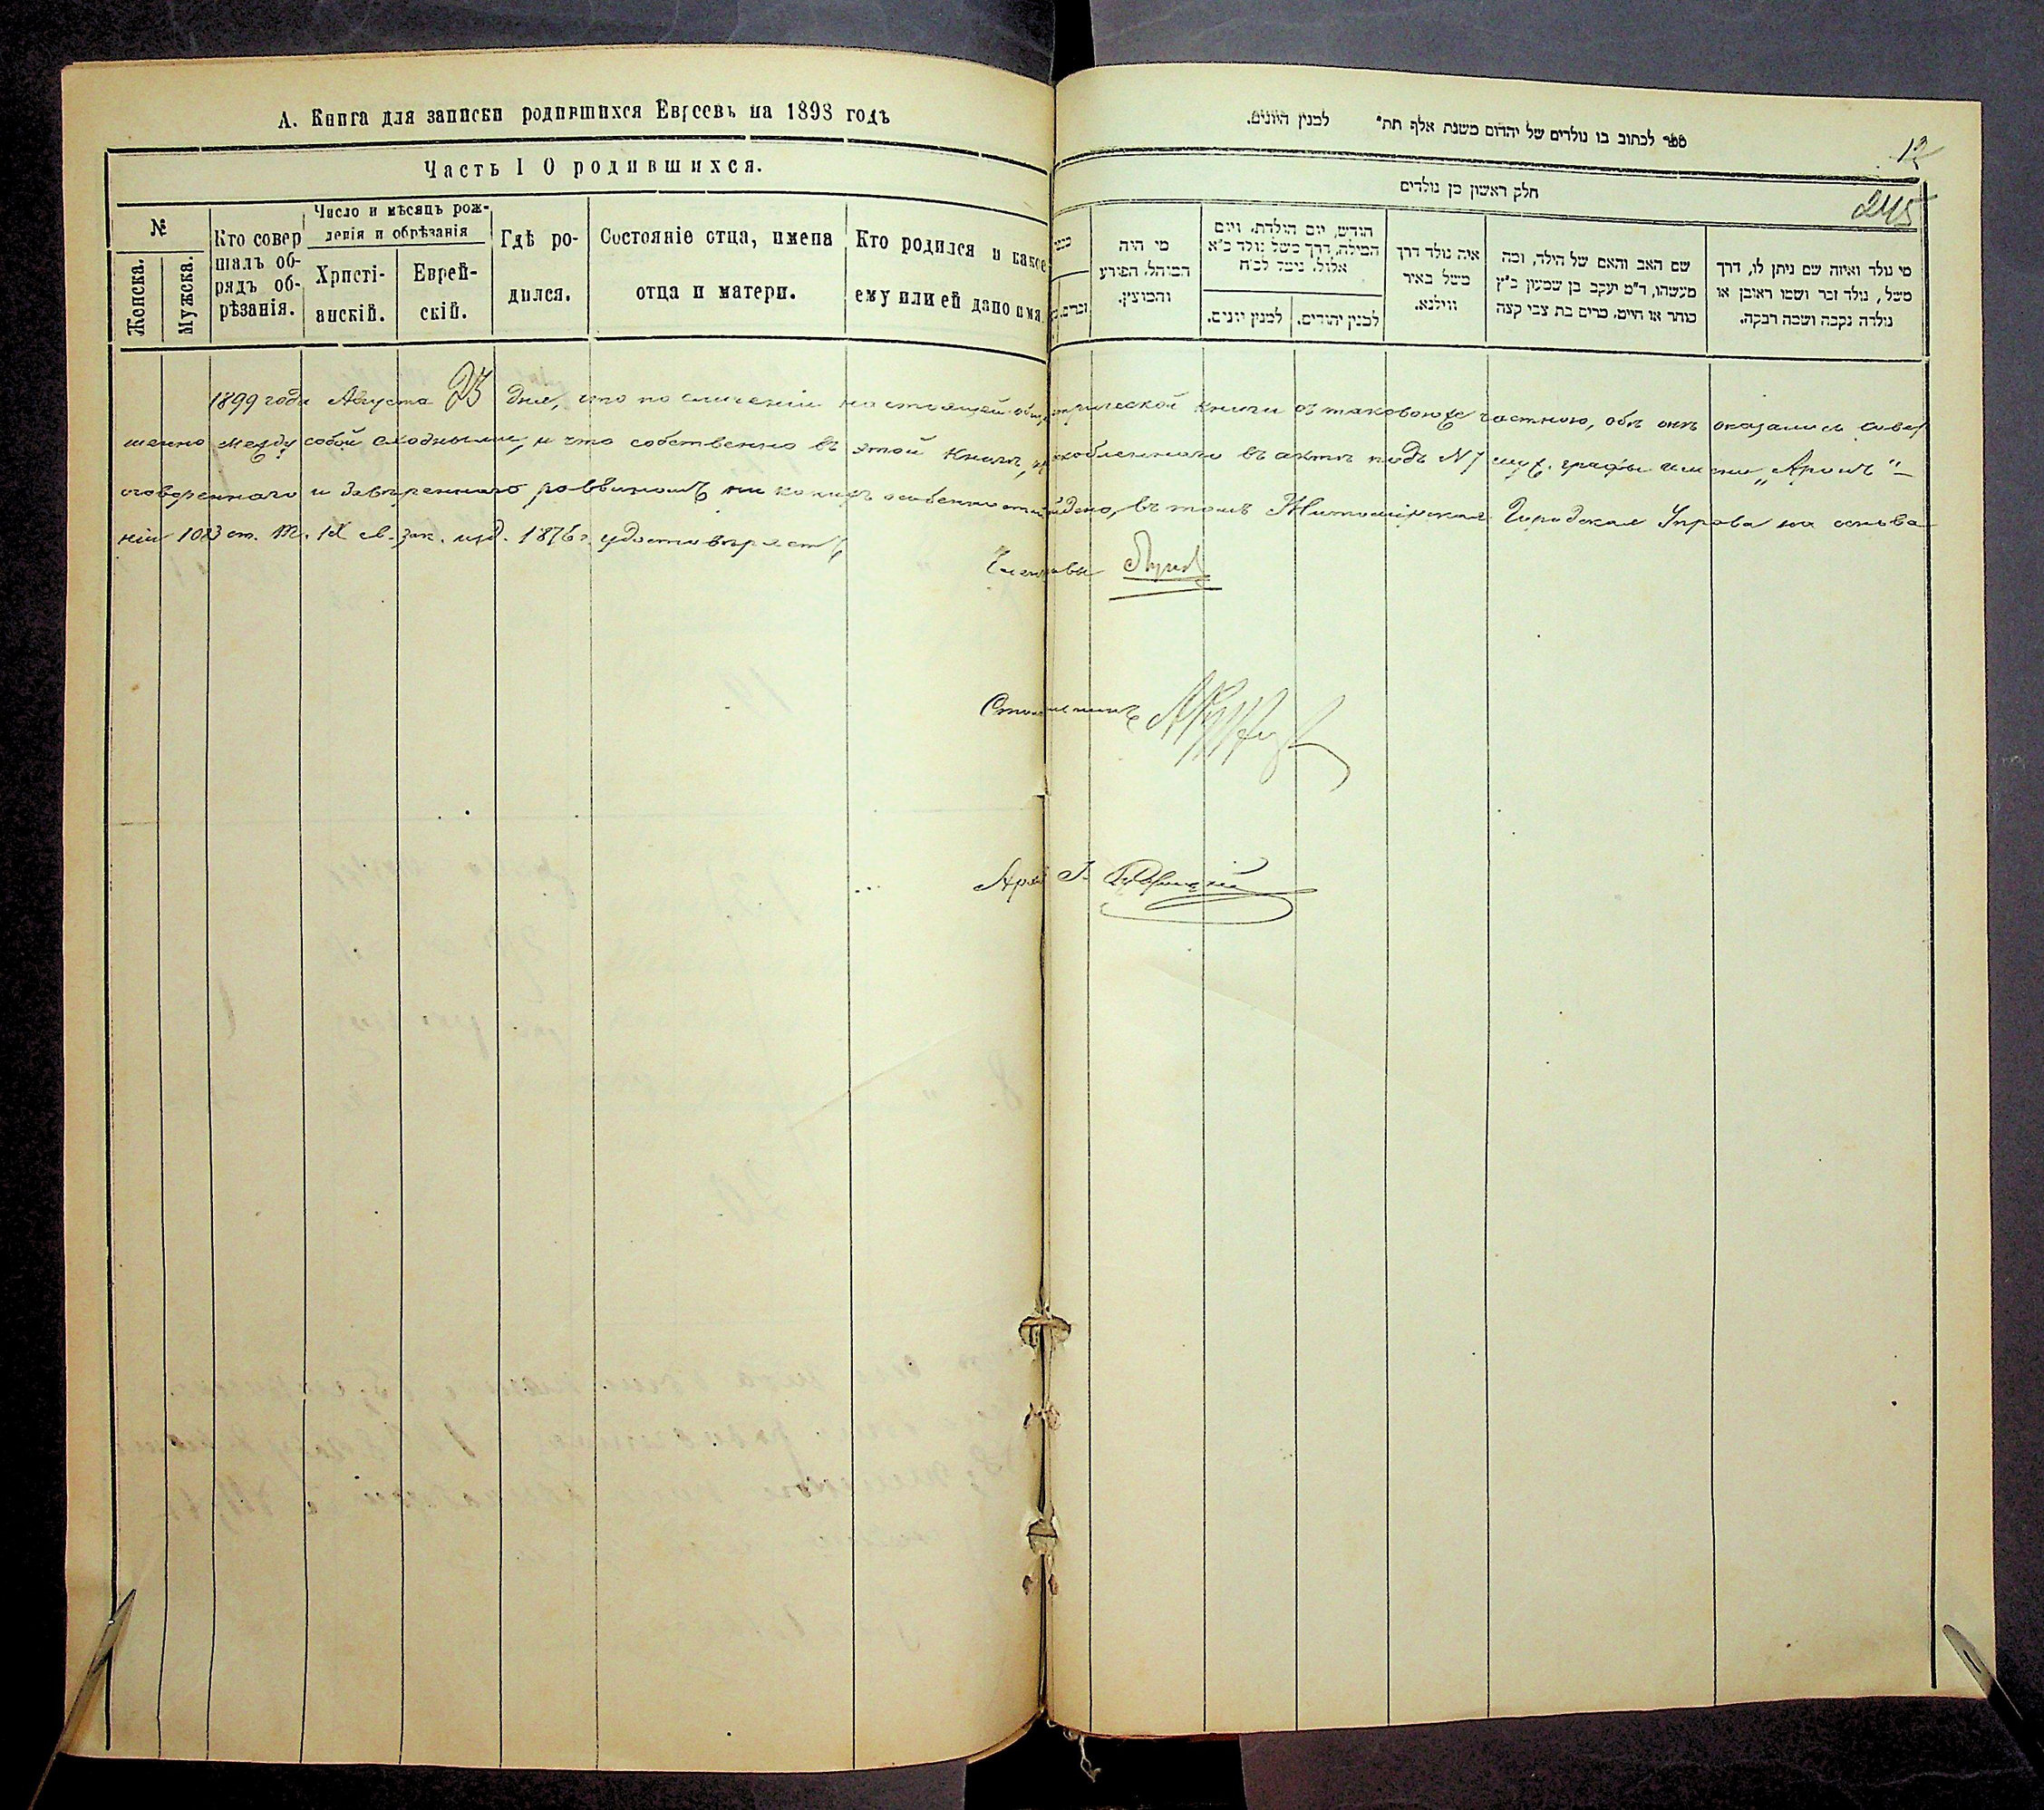 А. Книга для записки родившихся Евреевъ на 1898 годъ
Часть I О родившихся.
№
Женска.
Мужска.
Кто совер
шалъ об-
рядъ об-
рѣзанія.
Число и мѣсяцъ рож-
денія и обрѣзанія
Христі-
анскій.
Еврей-
скій.
Гдѣ ро-
дился.
Состояніе отца, имена
отца и матери.
Кто родился и какое
ему или ей дано имя.
ספר לכתוב בו נולדים של יהדום משנת אלף תת״ למנין היונים.
12
245
חלק ראשון מן נולדים
מי היה
המוהל, הפורע
והמוצץ.
חודש, יום הולדת, ויום
המילה, דרך משל נולד כ״א
אלול, נימל לכ״ח
למנין יונים.
למנין יהודים.
איה נולד דרך
משל באיר
ווילנא.
שם האב והאם של הילד, ומה
מעשהו, ד״מ יעקב בן שמעון כ״ץ
סוחר או חייט, מרים בת צבי קצה
מי נולד ואיזה שם ניתן לו, דרך
משל, נולד זכר ושמו ראובן או
נולדה נקבה ושמה רבקה.
1899 года Августа 23 дня, что по сличеніи настоящей метрической книги съ таковою же частною, обѣ онѣ оказались совер
шенно между собой сходными, и что собственно въ этой книгѣ, подъ № муж. графы имени „Аронъ"
оговореннаго и завѣреннаго раввиномъ никакихъ особенностей найдено, въ томъ Житомірская Городская Управа на основа
ніи 1083 ст. Т. IX св. зак. изд. 1876 г. удостовѣряетъ
Членъ Управы
Столоначальникъ